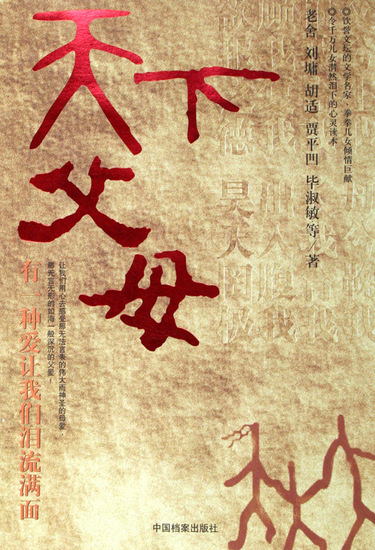 天下
父母
有一种爱让我们泪流满面
让我们用心去感受那无法言表的伟大而神圣的母爱，
那无言无形的如海一般深沉的父爱！
老舍 刘墉 胡适 贾平凹 毕淑敏等/著
◎饮誉文坛的文学名家、拳拳儿女倾情巨献
◎令千万儿女潸然泪下的心灵读本
中国档案出版社